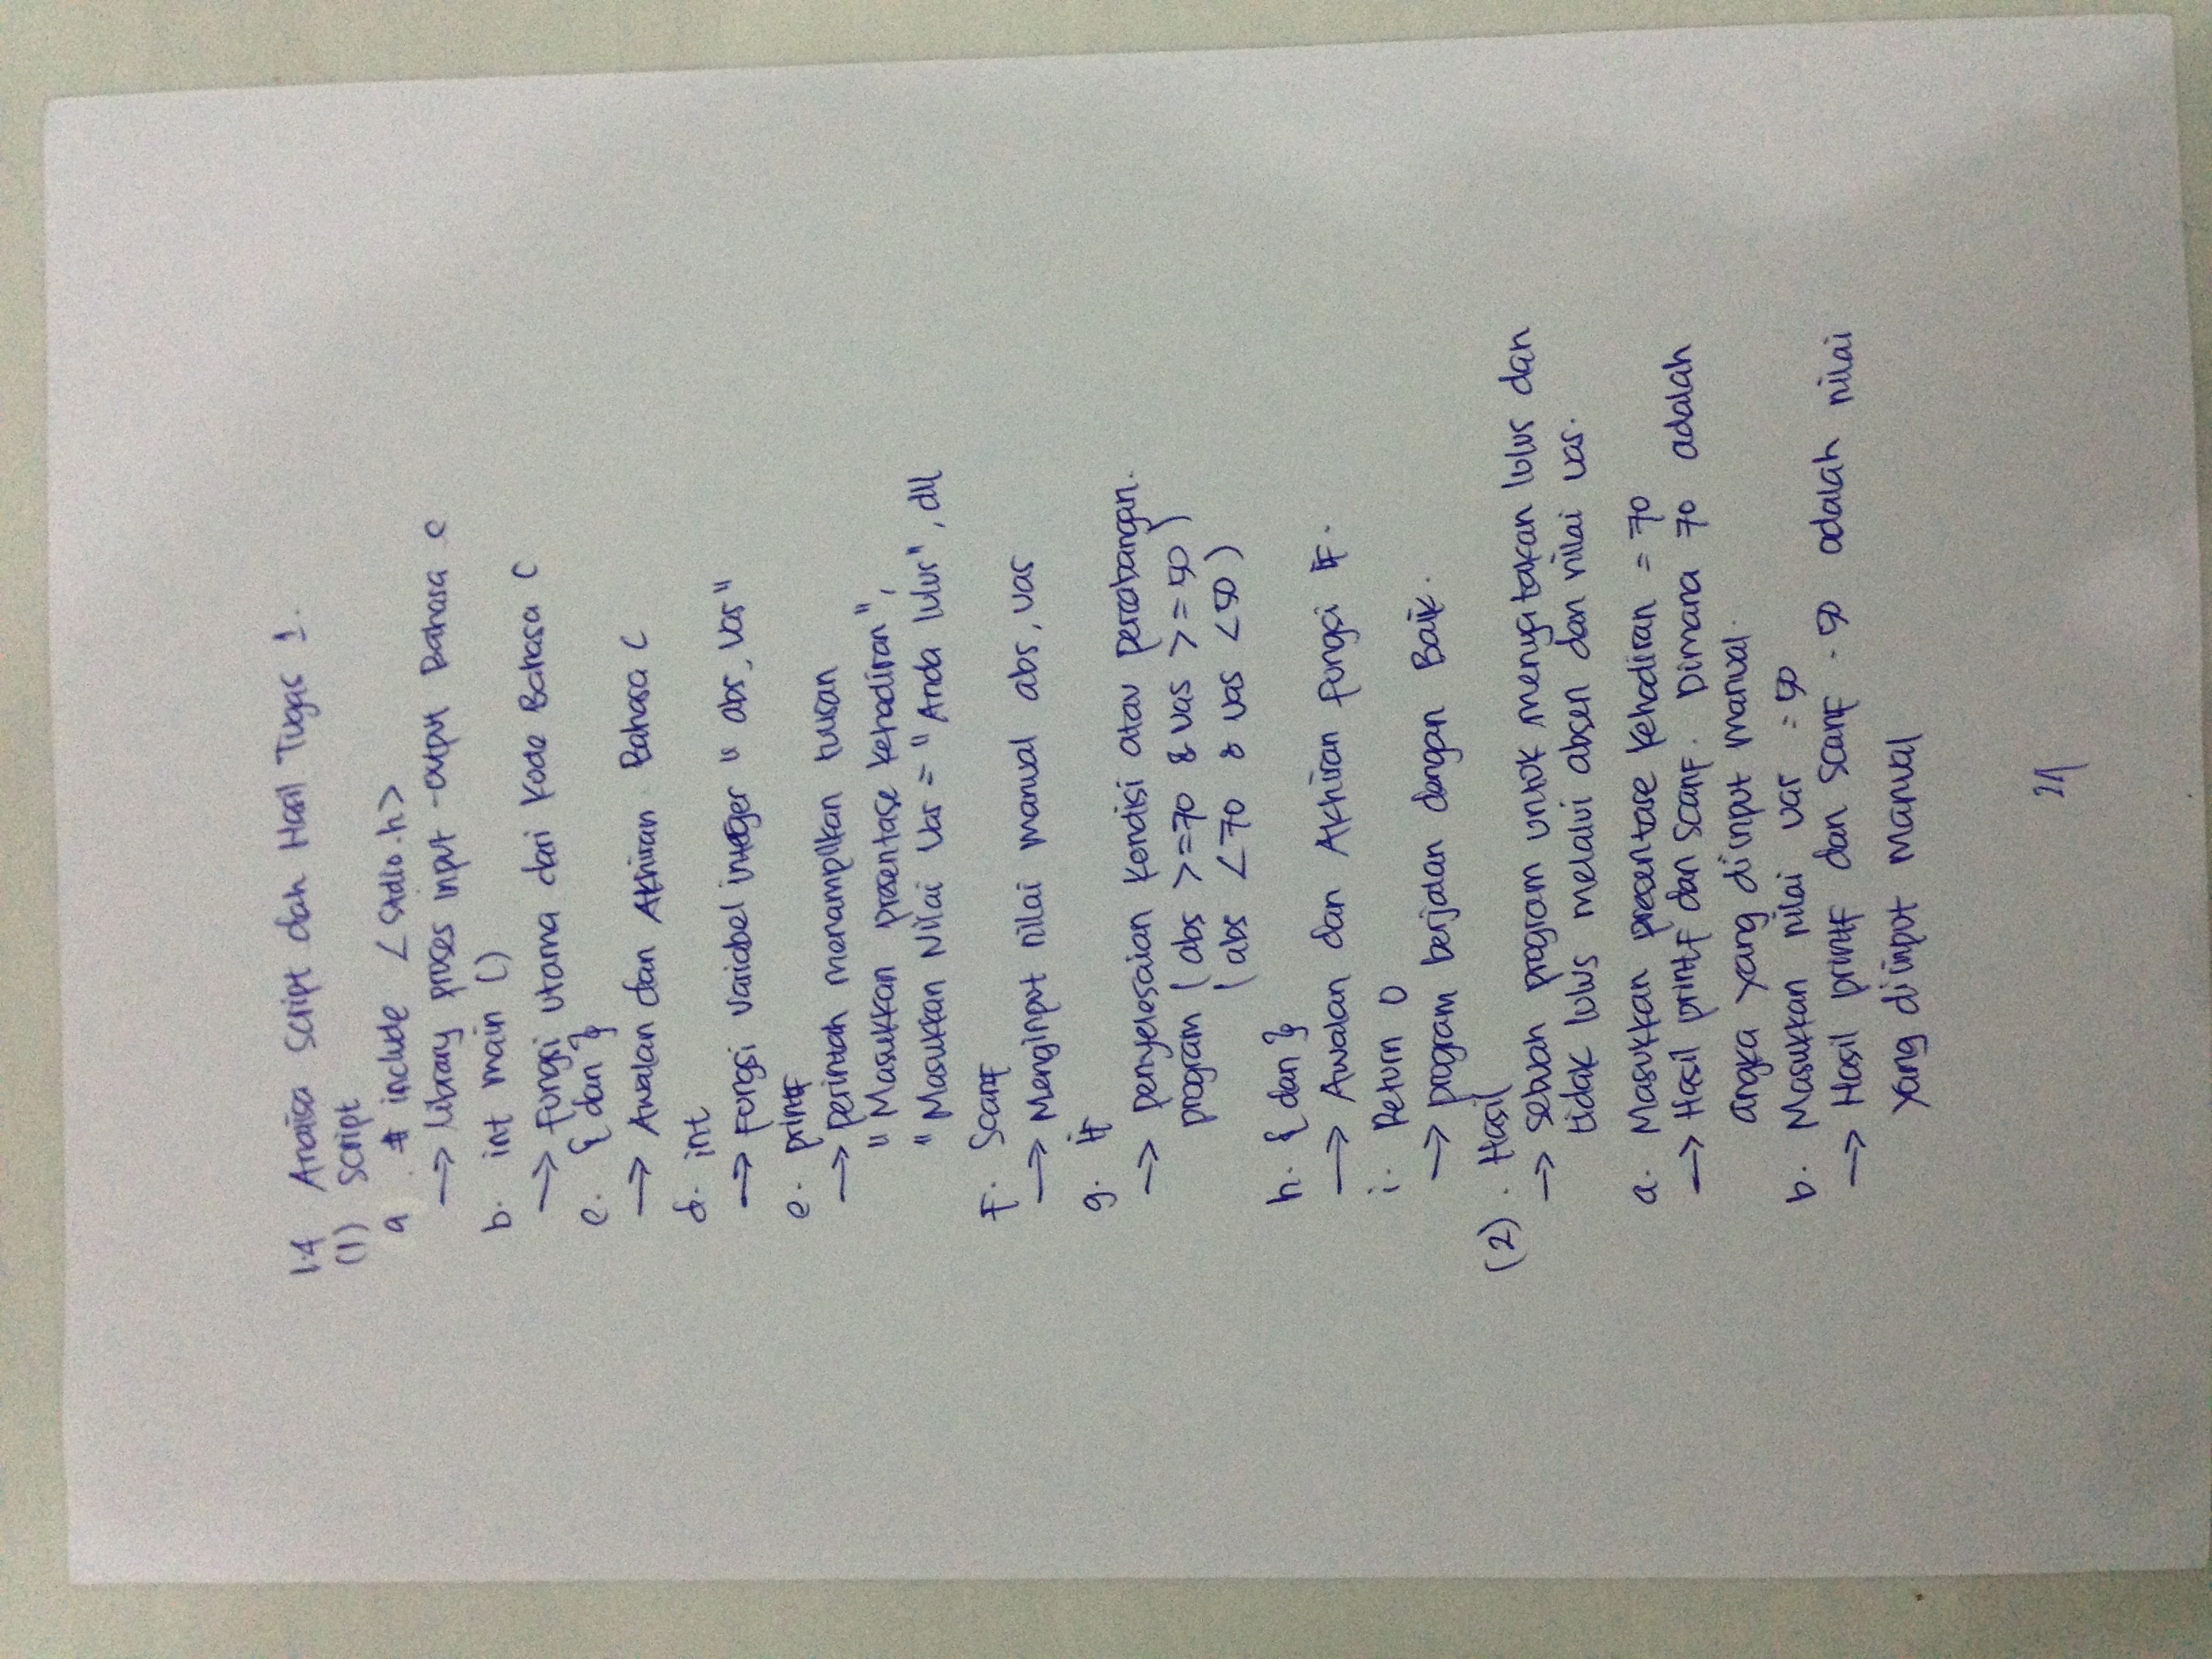 1.4 Analisa Script dan Hasil Tugas 1.
(1) script
a. # include <stdio.h>
→ library proses input-output Bahasa C
b. int main ()
→ fungsi utama dari Kode Bahasa C
c. { dan }
→ Awalan dan Akhiran Bahasa C
d. int
→ Fungsi variabel integer " abs, uas"
e. printf
→ perintah menampilkan tulisan
" Masukkan presentase kehadiran",
"Masukkan Nilai Uas = "Anda lulus", dll
f. Scanf
→ Menginput nilai manual abs, uas
g. if
→ penyelesaian kondisi atau percabangan.
program ( abs >=70 & uas >=50 )
( abs <70 & uas <50 )
h. { dan }
→ Awalan dan Akhiran fungsi IF.
i. Return 0
→ program berjalan dengan Baik.
(2). Hasil
→ sebuah program untuk menyatakan lulus dan
tidak lulus melalui absen dan nilai uas.
a. Masukkan presentase Kehadiran = 70
→ Hasil printf dan scanf. Dimana 70 adalah
angka yang diinput manual.
b. Masukkan nilai uas = 50
→ Hasil printf dan scanf - 50 adalah nilai
yang diinput manual
21